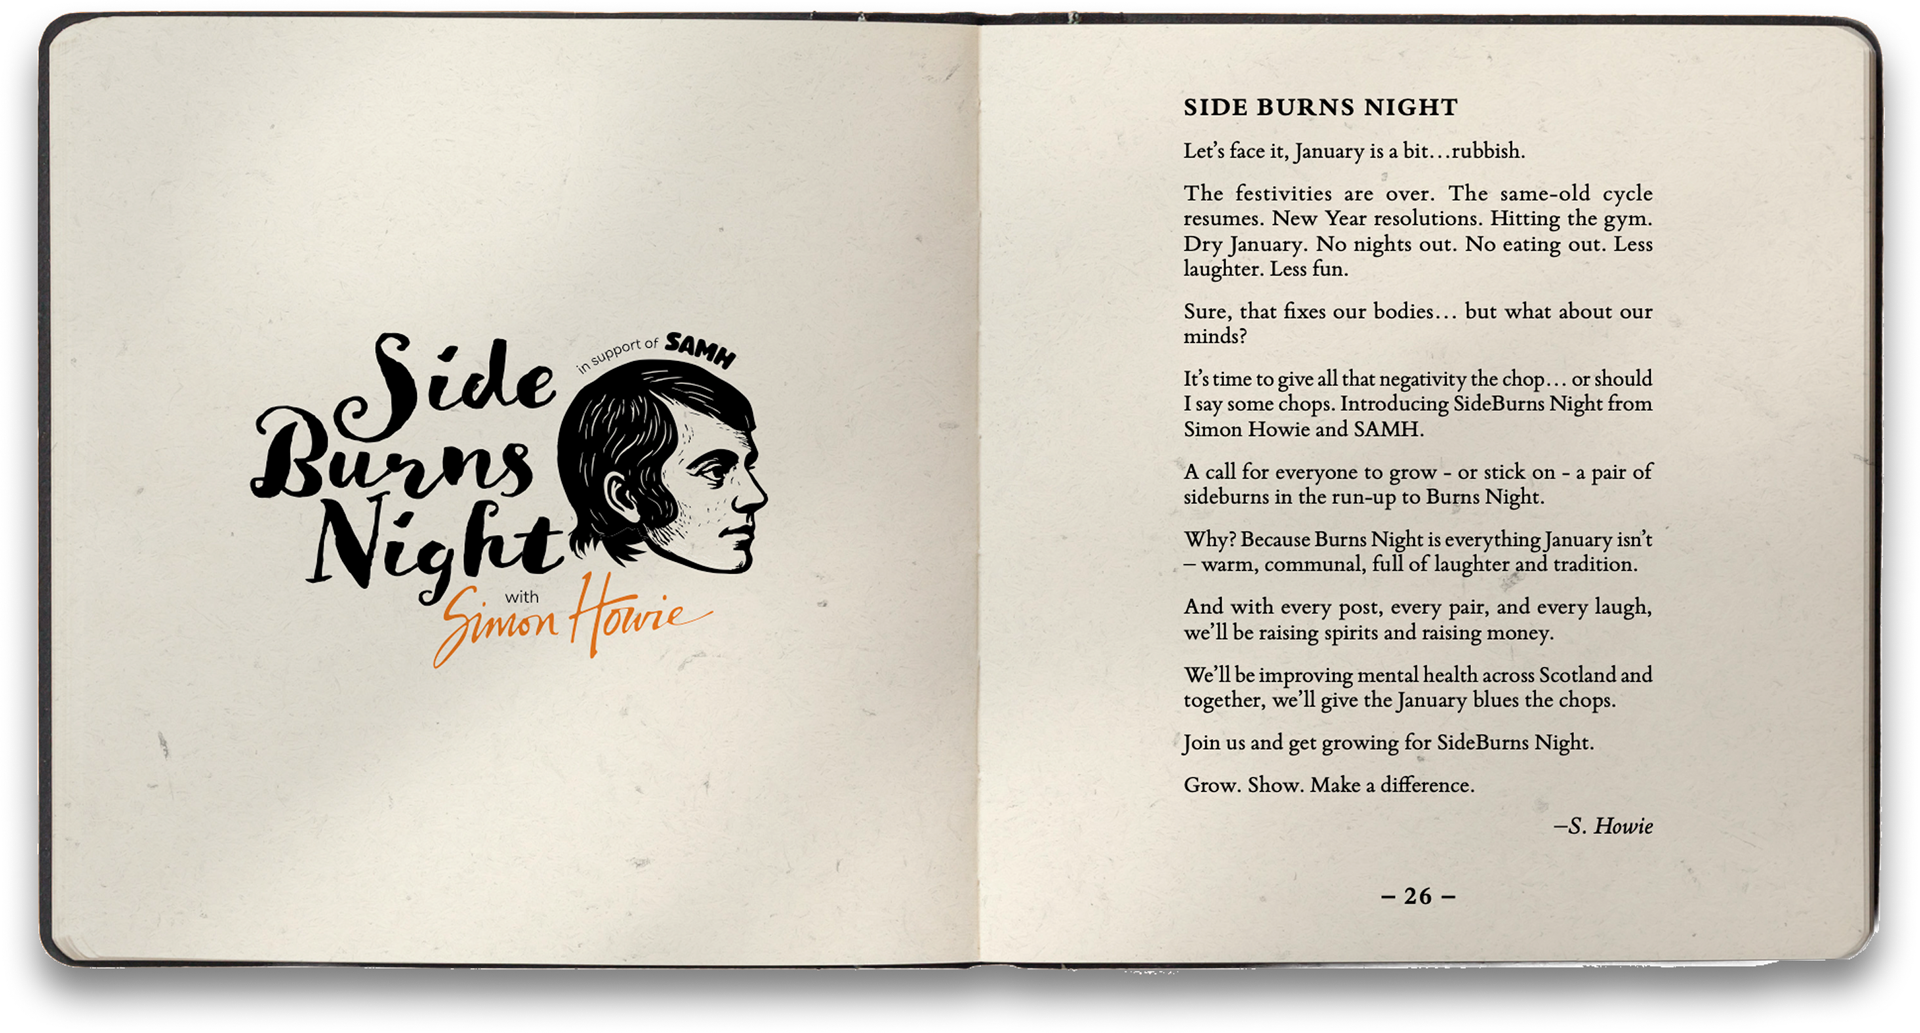 Side
in support of SAMH
Burns
Night
with
Simon Howie
SIDE BURNS NIGHT
Let’s face it, January is a bit…rubbish.
The festivities are over. The same-old cycle
resumes. New Year resolutions. Hitting the gym.
Dry January. No nights out. No eating out. Less
laughter. Less fun.
Sure, that fixes our bodies… but what about our
minds?
It’s time to give all that negativity the chop… or should
I say some chops. Introducing SideBurns Night from
Simon Howie and SAMH.
A call for everyone to grow - or stick on - a pair of
sideburns in the run-up to Burns Night.
Why? Because Burns Night is everything January isn’t
– warm, communal, full of laughter and tradition.
And with every post, every pair, and every laugh,
we’ll be raising spirits and raising money.
We’ll be improving mental health across Scotland and
together, we’ll give the January blues the chops.
Join us and get growing for SideBurns Night.
Grow. Show. Make a difference.
–S. Howie
– 26 –